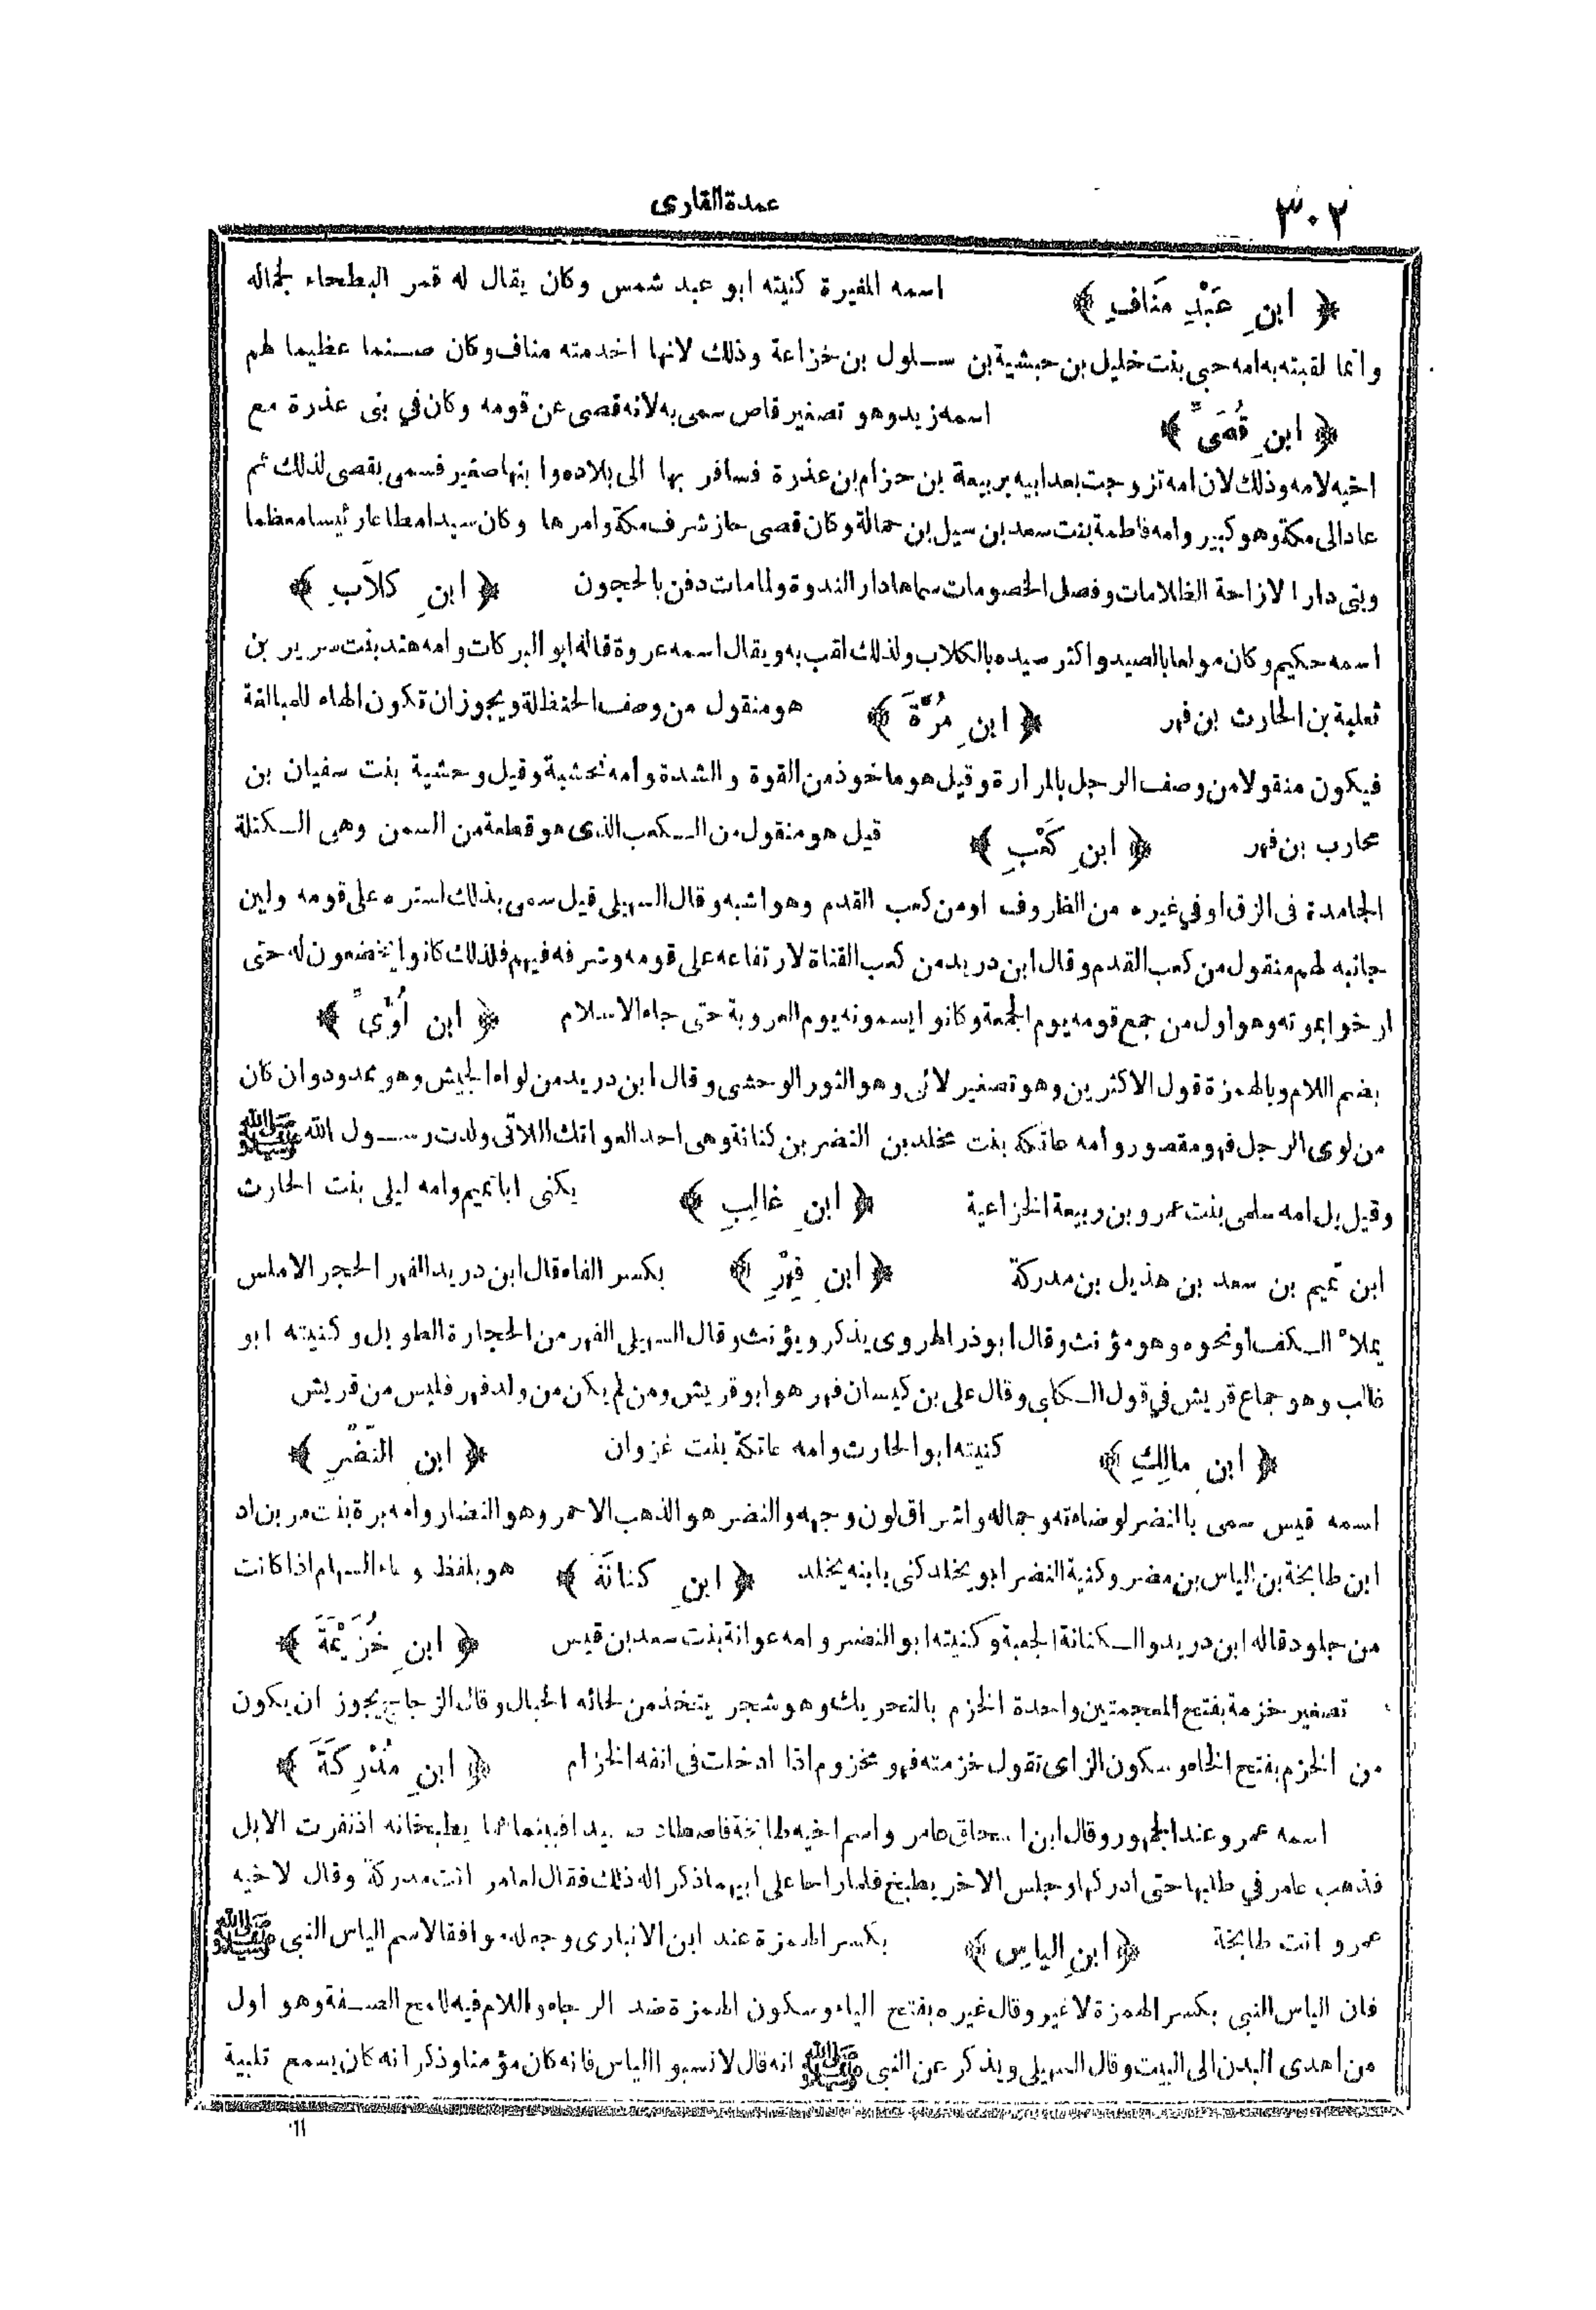 ٣٠٢
عمدة القارى
﴿ ابنِ عَبْدِ مَنَافٍ ﴾ اسمه المغيرة كنيته ابو عبد شمس وكان يقال له قمر البطحاء لجماله
وانما لقبته به امه حبى بنت خليل بن حبشية بن سلول بن خزاعة وذلك لانها اخدمته مناف وكان صنما عظيما لهم
﴿ ابنِ قُصَىٍّ ﴾ اسمه زيد وهو تصغير قاص سمى به لانه قصى عن قومه وكان في بنى عذرة مع
اخيه لامه وذلك لان امه تزوجت بعد ابيه بربيعة بن حزام بن عذرة فسافر بها الى بلاده وابنها صغير فسمى بقصى لذلك ثم
عاد الى مكة وهو كبير وامه فاطمة بنت سعد بن سيل بن حمالة وكان قصى حاز شرف مكة وامرها وكان سيدا مطاعا رئيسا معظما
وبنى دارا لازاحة الظلامات وفصل الخصومات سماها دار الندوة ولما مات دفن بالحجون ﴿ ابنِ كلاَبٍ ﴾
اسمه حكيم وكان مولعا بالصيد واكثر سيده بالكلاب ولذلك لقب به ويقال اسمه عروة قاله ابو البركات وامه هند بنت سرير بن
ثعلبة بن الحارث بن فهر ﴿ ابنِ مُرَّةَ ﴾ هو منقول من وصف الحنظلة ويجوز ان تكون الهاء للمبالغة
فيكون منقولا من وصف الرجل بالمرارة وقيل هو ماخوذ من القوة والشدة وامه نحشية وقيل وحشية بنت سفيان بن
محارب بن فهر ﴿ ابنِ كَعْبٍ ﴾ قيل هو منقول من الكعب الذى هو قطعة من السمن وهى الكتلة
الجامدة فى الزق او في غيره من الظروف او من كعب القدم وهو اشبه وقال السهيلى قيل سمى بذلك لستره على قومه ولين
جانبه لهم منقول من كعب القدم وقال ابن دريد من كعب القناة لارتفاعه على قومه وشرفه فيهم فلذلك كانوا يخضعون له حتى
ارخوا بموته وهو اول من جمع قومه يوم الجمعة وكانوا يسمونه يوم العروبة حتى جاء الاسلام ﴿ ابن لُؤَىٍّ ﴾
بضم اللام وبالهمزة قول الاكثرين وهو تصغير لائى وهو الثور الوحشى وقال ابن دريد من لواء الجيش وهو ممدود وان كان
من لوى الرجل فهو مقصور وامه عاتكة بنت مخلد بن النضر بن كنانة وهى احد العواتك اللاتى ولدت رسول الله ﷺ
وقيل بل امه سلمى بنت عمرو بن ربيعة الخزاعية ﴿ ابنِ غالِبٍ ﴾ يكنى ابا تميم وامه ليلى بنت الحارث
ابن تميم بن سعد بن هذيل بن مدركة ﴿ ابنِ فِهْرٍ ﴾ بكسر الفاء قال ابن دريد الفهر الحجر الاملس
يملأ الكف او نحوه وهو مؤنث وقال ابو ذر الهروى يذكر ويؤنث وقال السهيلى الفهر من الحجارة الطويل وكنيته ابو
غالب وهو جماع قريش في قول الكلبى وقال على بن كيسان فهر هو ابو قريش ومن لم يكن من ولد فهر فليس من قريش
﴿ ابنِ مالِكٍ ﴾ كنيته ابو الحارث وامه عاتكة بنت غزوان ﴿ ابنِ النَّضْرِ ﴾
اسمه قيس سمى بالنضر لوضاءته وجماله واشراق لون وجهه والنضر هو الذهب الاحمر وهو النضار وامه برة بنت مر بن اد
ابن طابخة بن الياس بن مضر وكنية النضر ابو يخلد كنى بابنه يخلد ﴿ ابنِ كنانَةَ ﴾ هو بلفظ وعاء السهام اذا كانت
من جلود قاله ابن دريد والكنانة الجعبة وكنيته ابو النضر وامه عوانة بنت سعد بن قيس ﴿ ابنِ خُزَيْمَةَ ﴾
تصغير خزمة بفتح المعجمتين واحدة الخزم بالتحريك وهو شجر يتخذ من لحائه الحبال وقال الزجاج يجوز ان يكون
من الخزم بفتح الخاء وسكون الزاى تقول خزمته فهو مخزوم اذا ادخلت فى انفه الخزام ﴿ ابنِ مُدْرِكَةَ ﴾
اسمه عمرو عند الجمهور وقال ابن اسحاق عامر واسم اخيه طابخة فاصطادا صيدا فبينما هما يطبخانه اذ نفرت الابل
فذهب عامر في طلبها حتى ادركها وجلس الاخر يطبخ فلما راحا على ابيهما ذكرا له ذلك فقال لعامر انت مدركة وقال لاخيه
عمرو انت طابخة ﴿ ابنِ الياسِ ﴾ بكسر الهمزة عند ابن الانبارى وجعله موافقا لاسم الياس النبى ﷺ
فان الياس النبى بكسر الهمزة لا غير وقال غيره بفتح الياء وسكون الهمزة ضد الرجاء واللام فيه للمح الصفة وهو اول
من اهدى البدن الى البيت وقال السهيلى ويذكر عن النبى ﷺ انه قال لا تسبوا الياس فانه كان مؤمنا وذكر انه كان يسمع تلبية